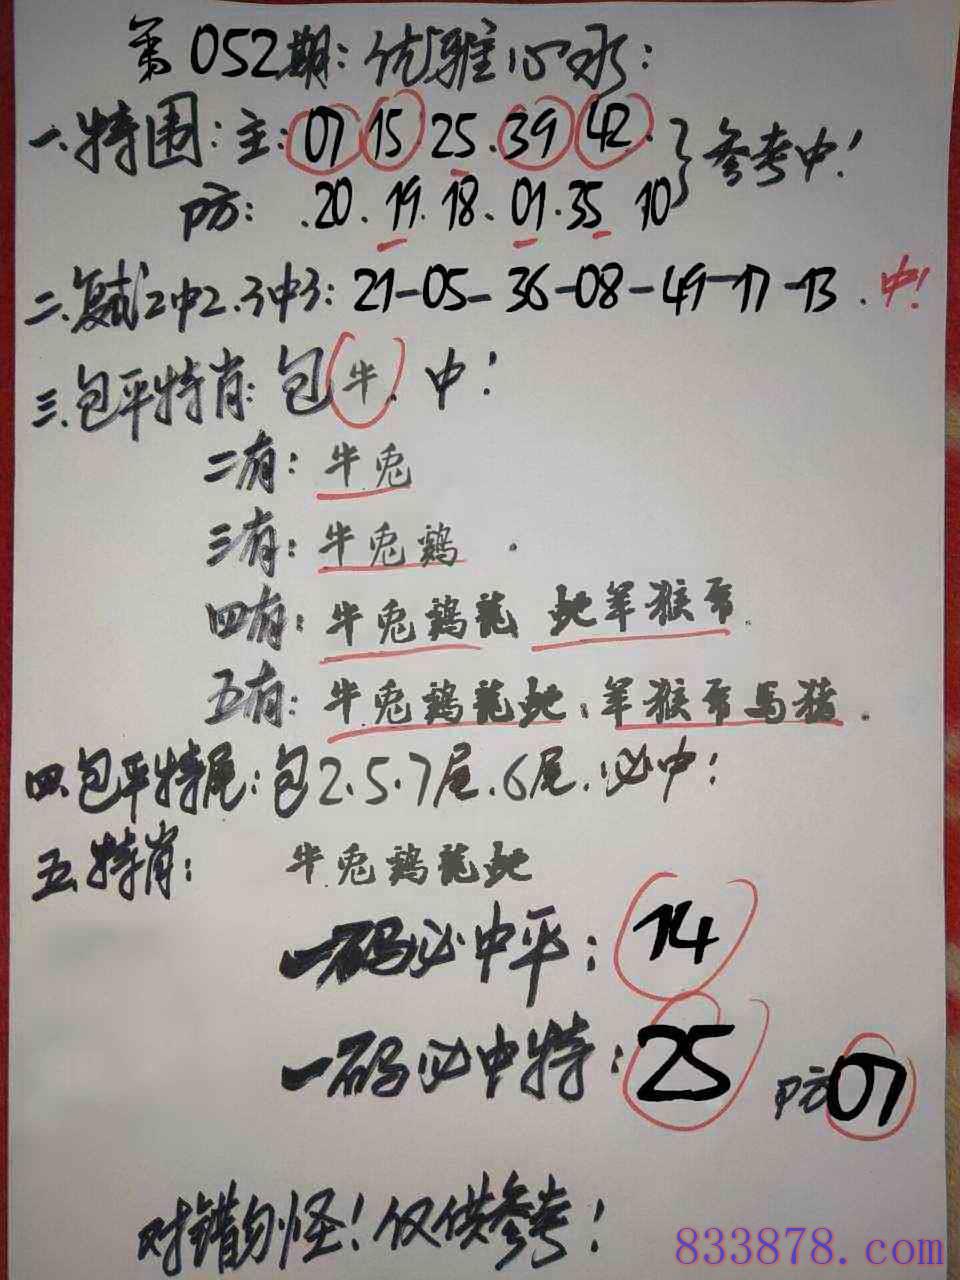 第052期：优雅心水：
一.特围：主：07 15 25.39 42.}参考中！
防：.20.19.18.01.35 10
二.复式2中2.3中3：21-05-36-08-49-17-13.中！
三.包平特肖：包牛.中！
二有：牛兔
三有：牛兔鸡.
四有：牛兔鸡龙 蛇羊猴鼠.
五有：牛兔鸡龙蛇；羊猴鼠马猪.
四.包平特尾：包2.5.7尾.6尾.必中！
五.特肖：牛兔鸡龙蛇
一码必中平：14
一码必中特：25 防07
对错勿怪！仅供参考！
833878.com